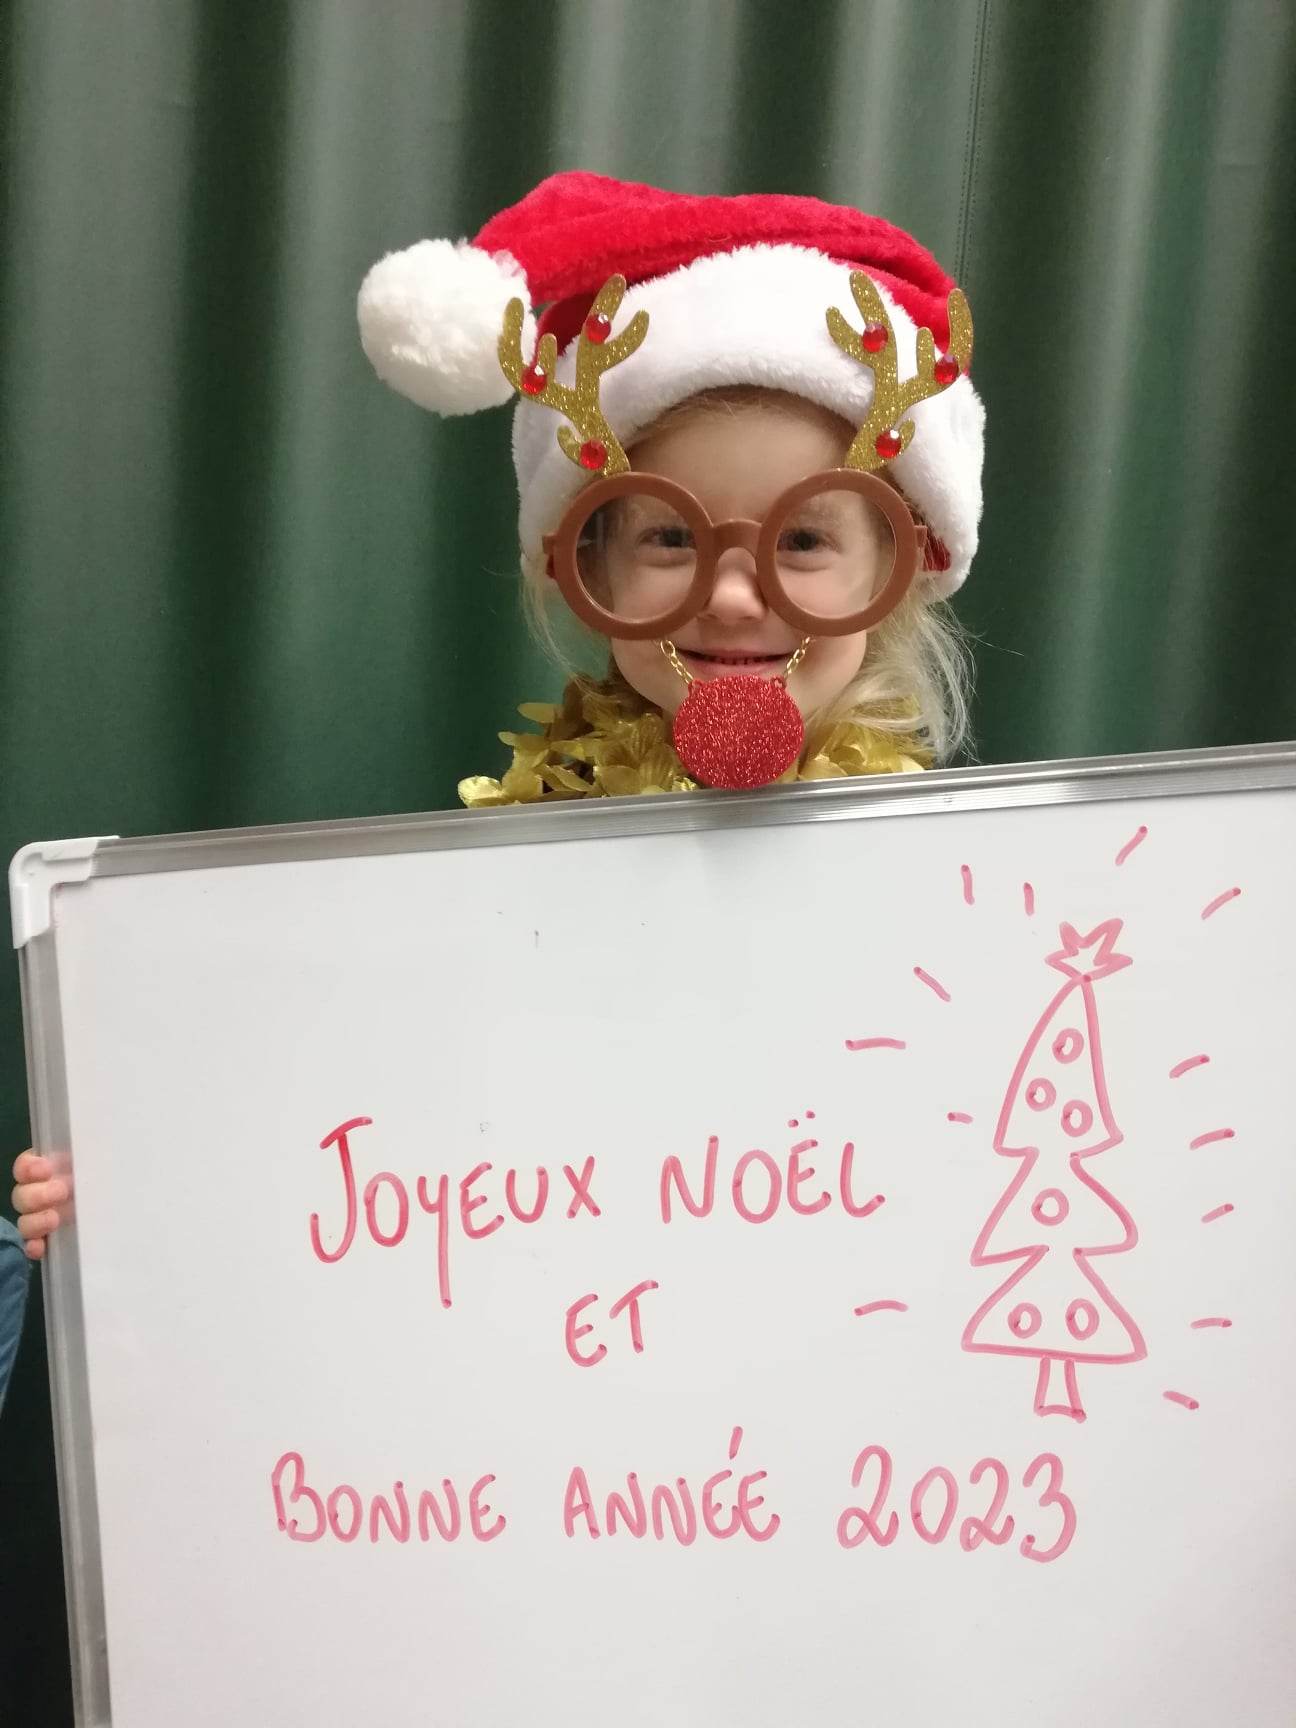 JOYEUX NOËL
ET
BONNE ANNÉE 2023